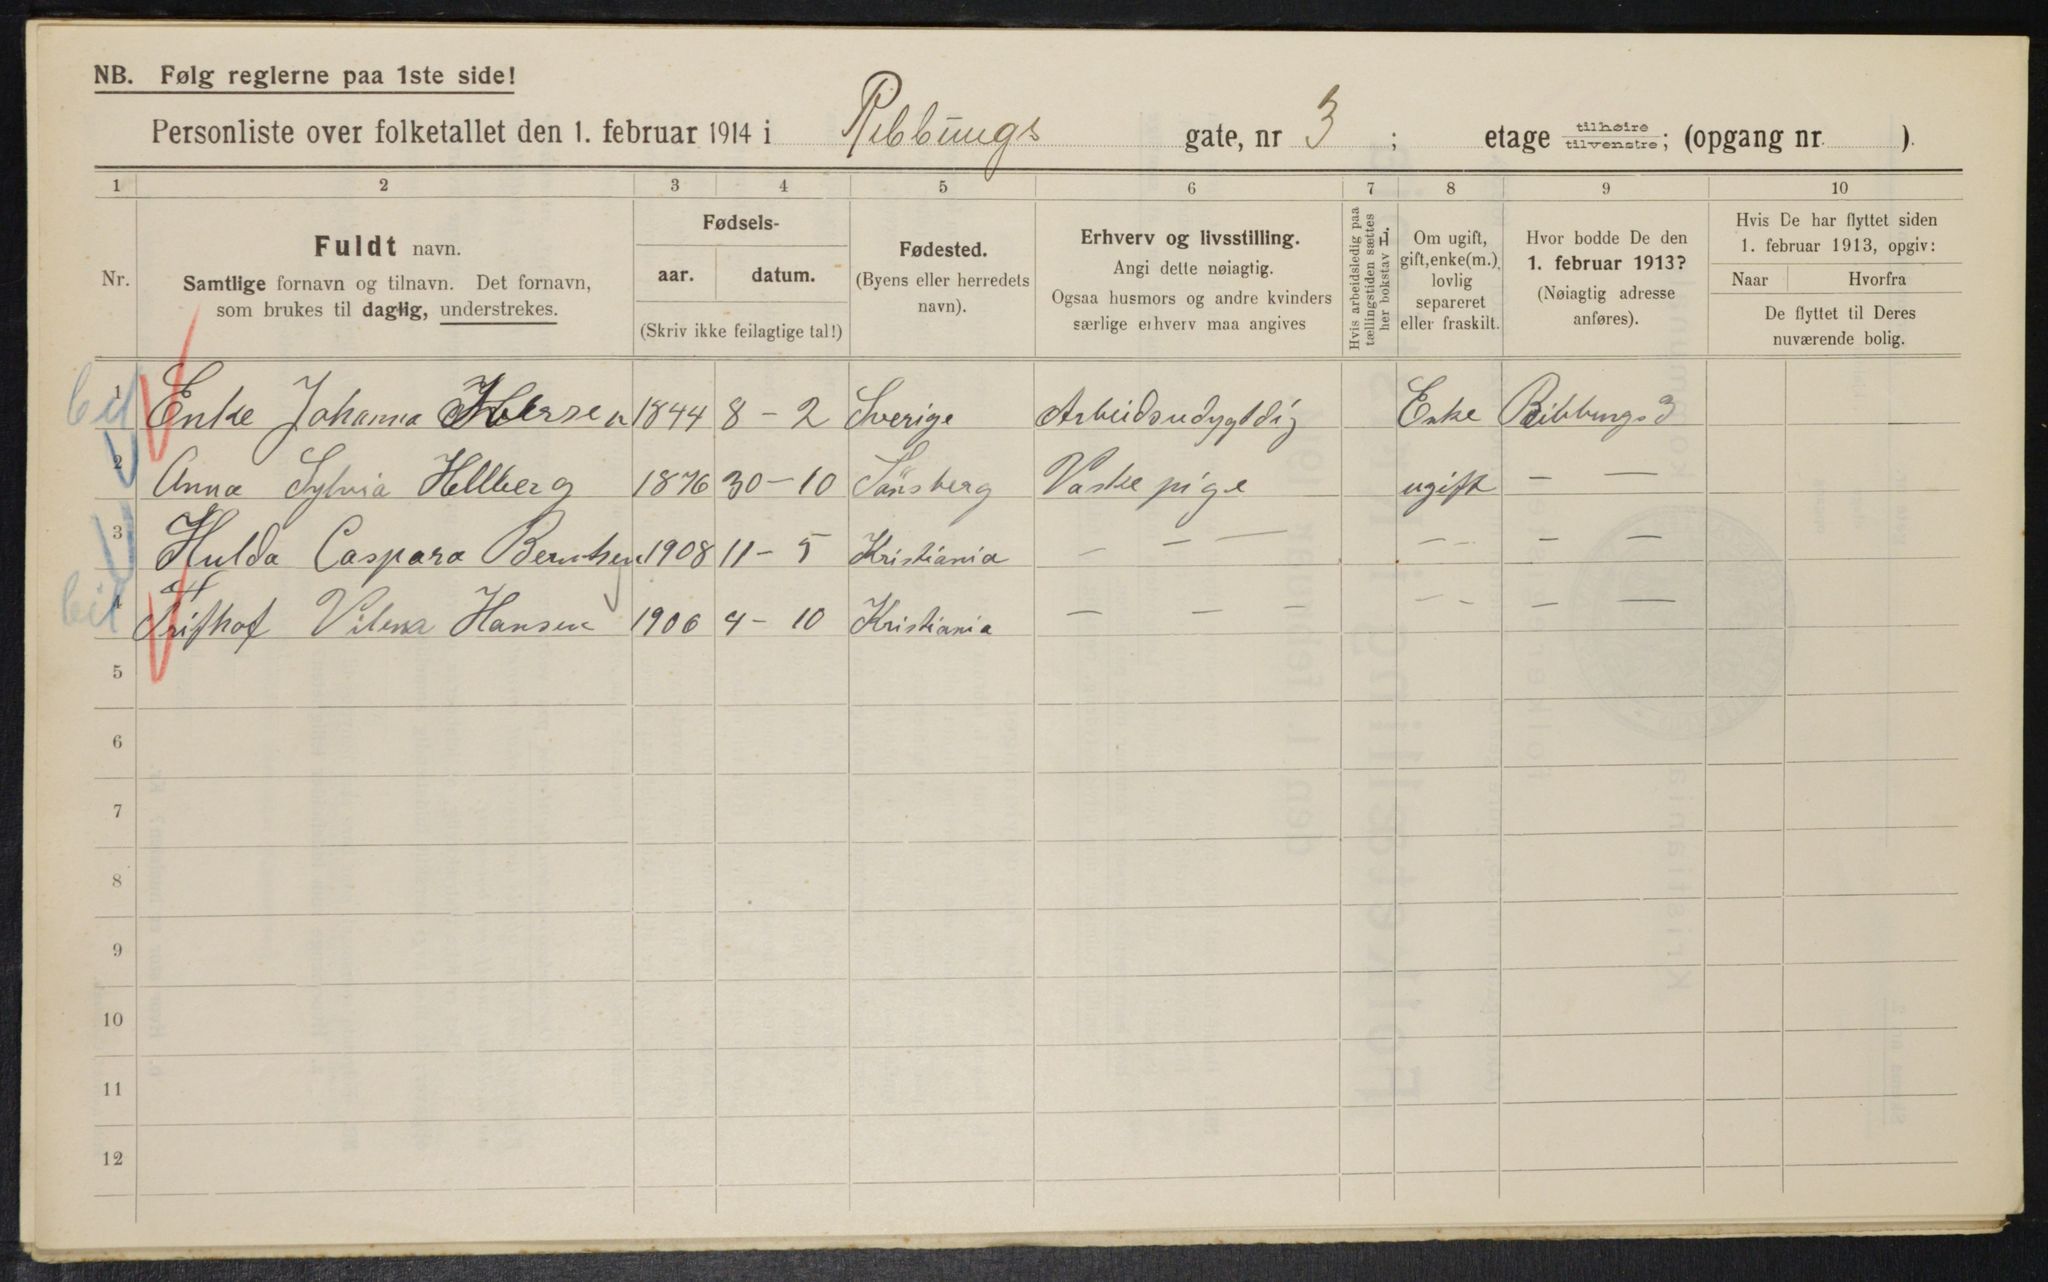 NB. Følg reglerne paa 1ste side!
Personliste over folketallet den 1. februar 1914 i Ribbungs gate, nr 3 ; etage tilhøire tilvenstre; (opgang nr. ).
1 2 3 4 5 6 7 8 9 10
Nr.
Fuldt navn.
Samtlige fornavn og tilnavn. Det fornavn,
som brukes til daglig, understrekes.
Fødsels-
aar. datum.
(Skriv ikke feilagtige tal!)
Fødested.
(Byens eller herredets
navn).
Erhverv og livsstilling.
Angi dette nøiagtig.
Ogsaa husmors og andre kvinders
særlige erhverv maa angives
Hvis arbeidsledig paa
tællingstiden sættes
her bokstav L.
Om ugift,
gift, enke(m.),
lovlig
separeret
eller fraskilt.
Hvor bodde De den
1. februar 1913?
(Nøiagtig adresse
anføres).
Hvis De har flyttet siden
1. februar 1913, opgiv:
Naar Hvorfra
De flyttet til Deres
nuværende bolig.
1 Enke Johanna 1844 8 - 2 Sverige Arbeidsudygtdig Enke Ribbungs 3
2 Anna Sylvia Hellberg 1876 30 - 10 Tønsberg Vaske pige ugift — —
3 Hulda Caspara Berntsen 1908 11 - 5 Kristiania — — — — — — —
4 Frithof Hansen 1906 4 - 10 Kristiania — — — — — — —
5
6
7
8
9
10
11
12